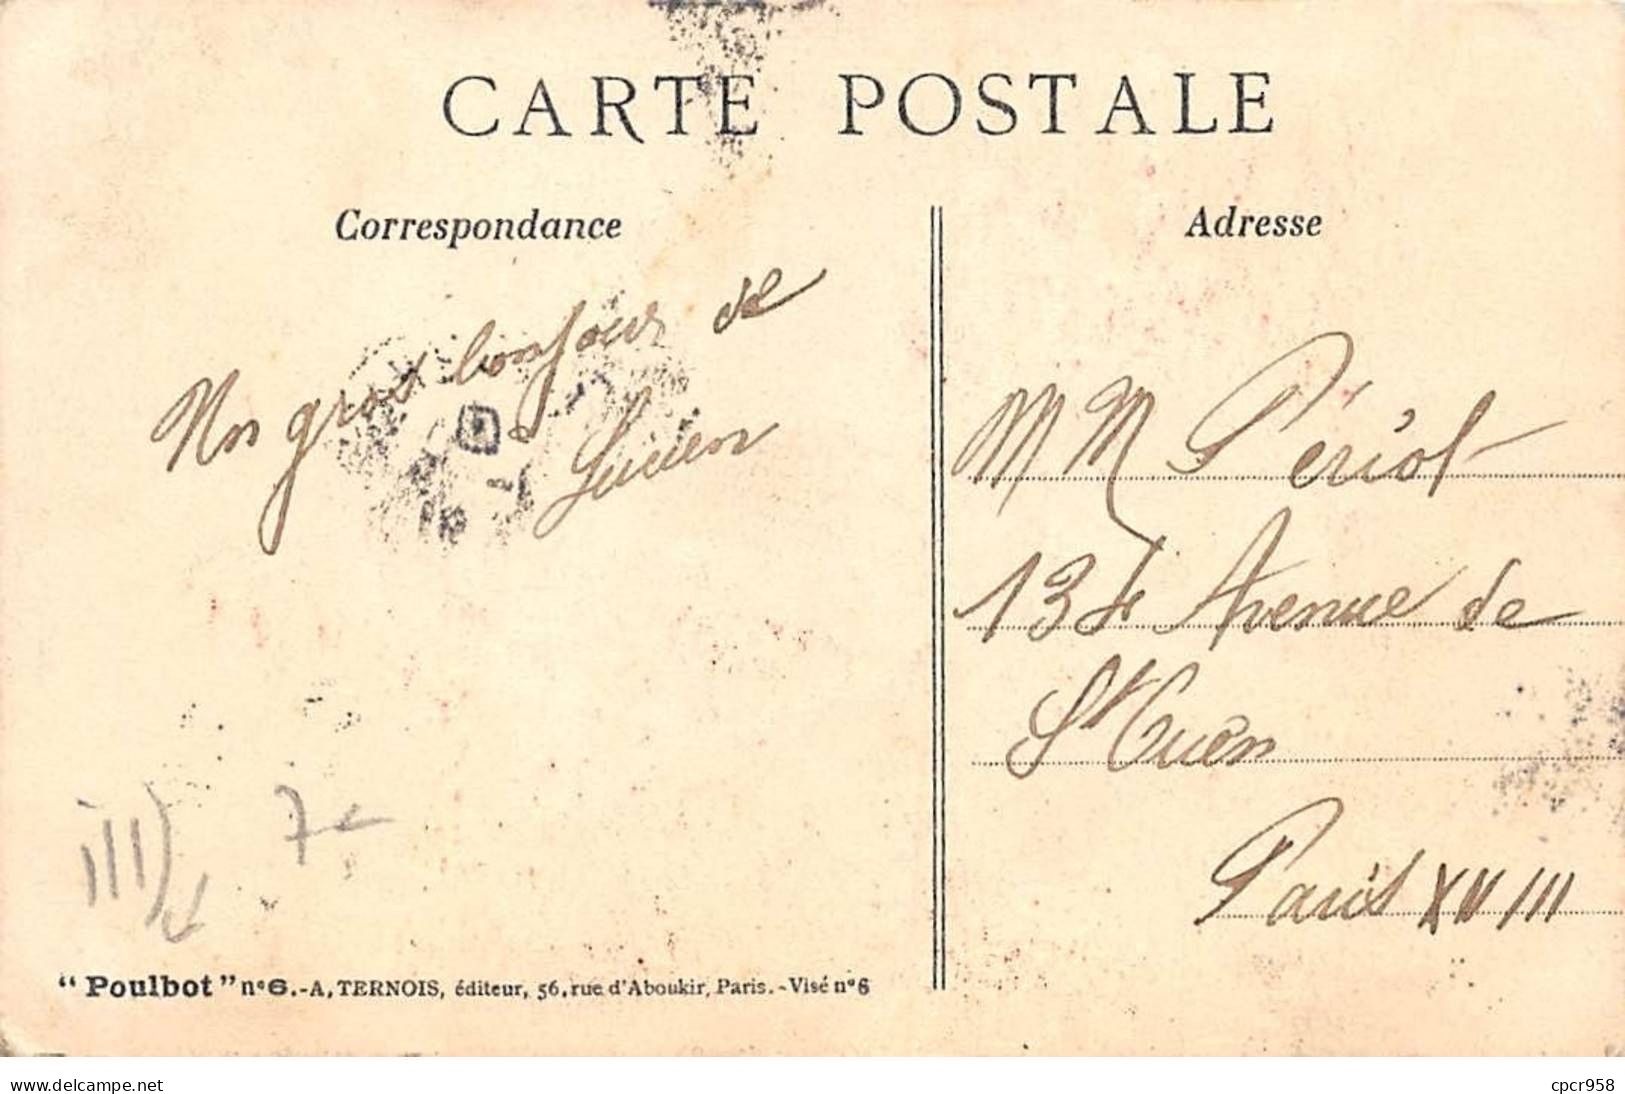 CARTE POSTALE
Correspondance
Un gros bonjour de
Lucien
Adresse
M M Périot
134 Avenue de
St Ouen
Paris XVIII
7e
"Poulbot" n°6.-A. TERNOIS, éditeur, 56, rue d'Aboukir, Paris.-Visé n°6
www.delcampe.net
cpcr958